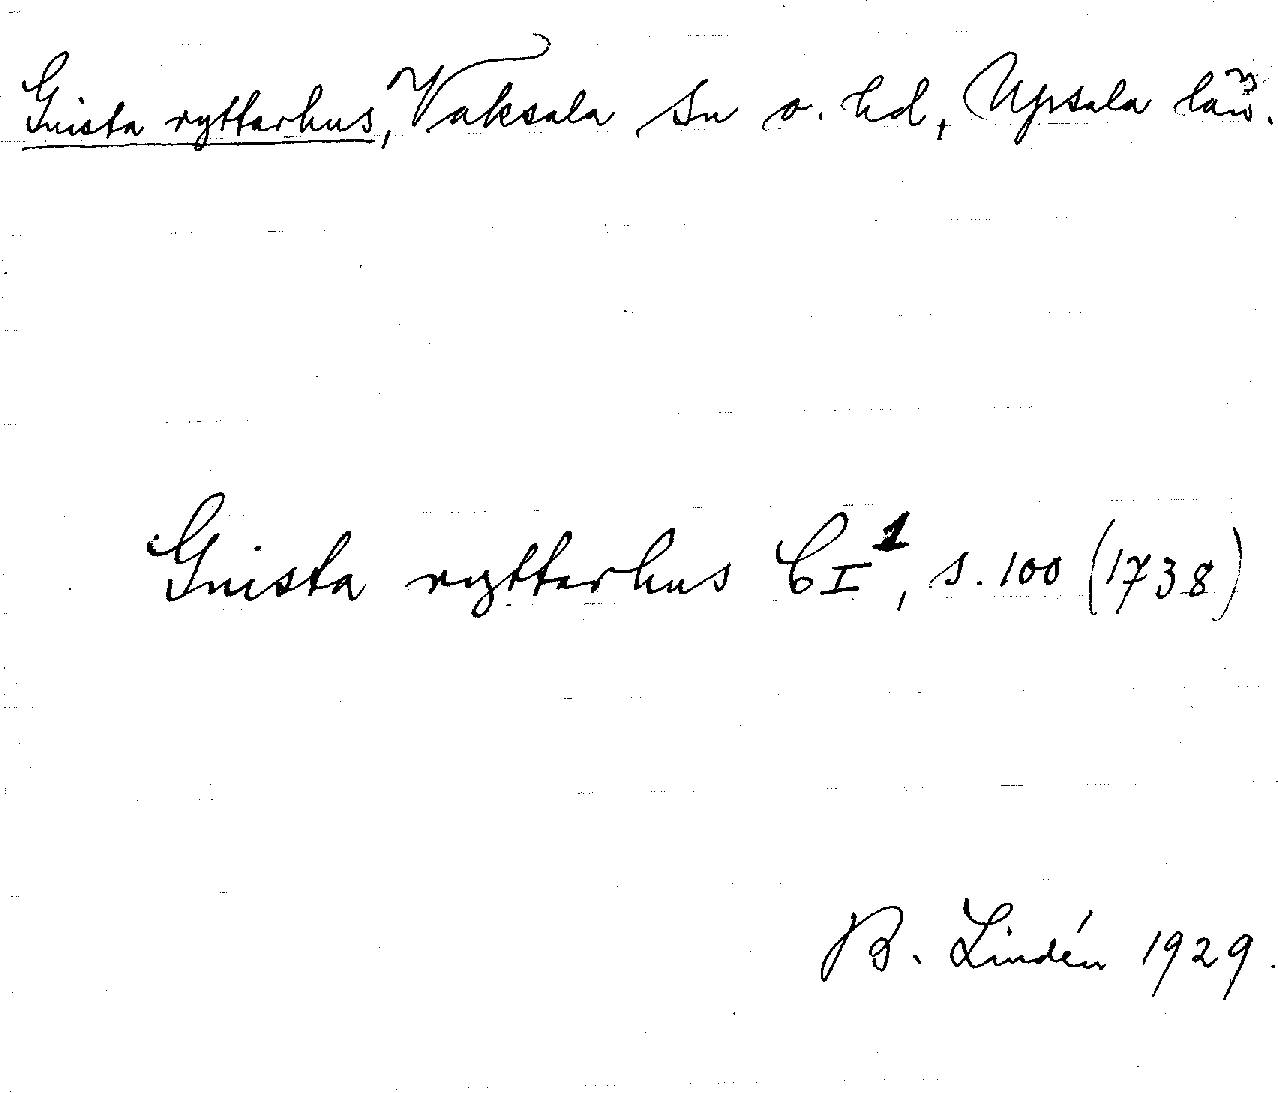 Gnista ryttarhus, Vaksala sn o. hd, Upsala län.
Gnista ryttarhus C I¹, s. 100 (1738)
B. Lindén 1929.